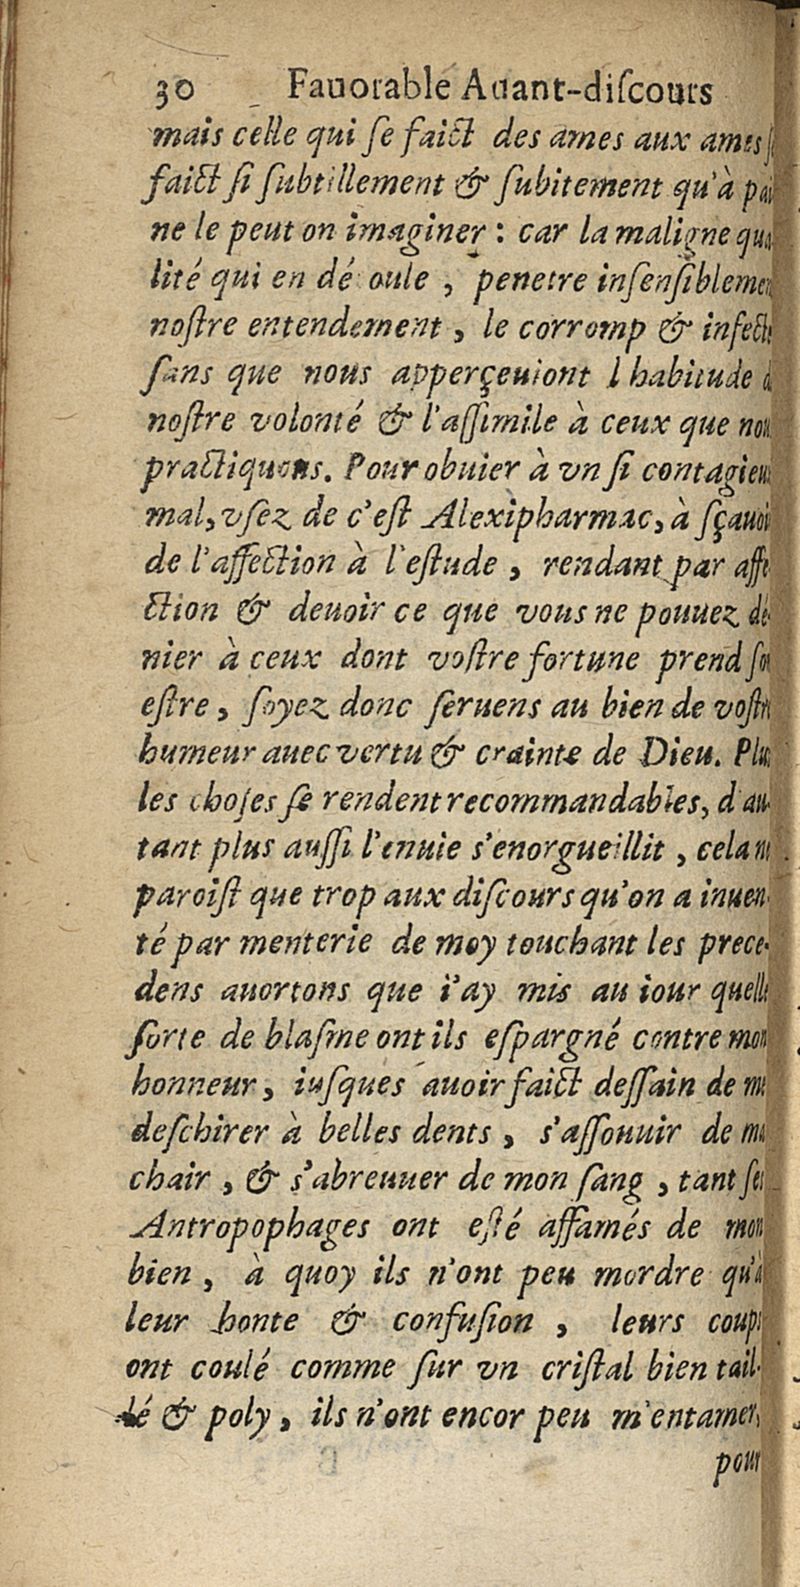 30 Fauorable Auant-diſcours
mais celle qui ſe faict des ames aux ames ſ
faict ſi ſubtillement & ſubitement qu'à pai
ne le peut on imaginer : car la maligne qua
lité qui en dé oule , penetre inſenſiblemen
noſtre entendement , le corromp & infecte
ſans que nous apperçeuiont l habitude d
noſtre volonté & l'aſſimile à ceux que nou
practiquons. Pour obuier à vn ſi contagieux
mal, vſez de c'eſt Alexipharmac, à ſçauoir
de l'affection à l'eſtude , rendant par affe
ction & deuoir ce que vous ne pouuez dé-
nier à ceux dont voſtre fortune prend ſon
eſtre , ſoyez donc feruens au bien de voſtre
humeur auec vertu & crainte de Dieu. Plus
les choſes ſe rendent recommandables, d'au-
tant plus auſſi l'enuie s'enorgueillit , cela ne
paroiſt que trop aux diſcours qu'on a inuen-
té par menterie de moy touchant les prece-
dens auortons que i'ay mis au iour quelle
ſorte de blaſme ont ils eſpargné contre mon
honneur, iuſques auoir faict deſſain de me
deſchirer à belles dents , s'aſſouuir de ma
chair , & s'abreuuer de mon ſang , tant ſes
Antropophages ont eſté affamés de mon
bien , à quoy ils n'ont peu mordre qu'à
leur honte & confuſion , leurs coups
ont coulé comme ſur vn criſtal bien tail-
lé & poly, ils n'ont encor peu m'entamer,
pour